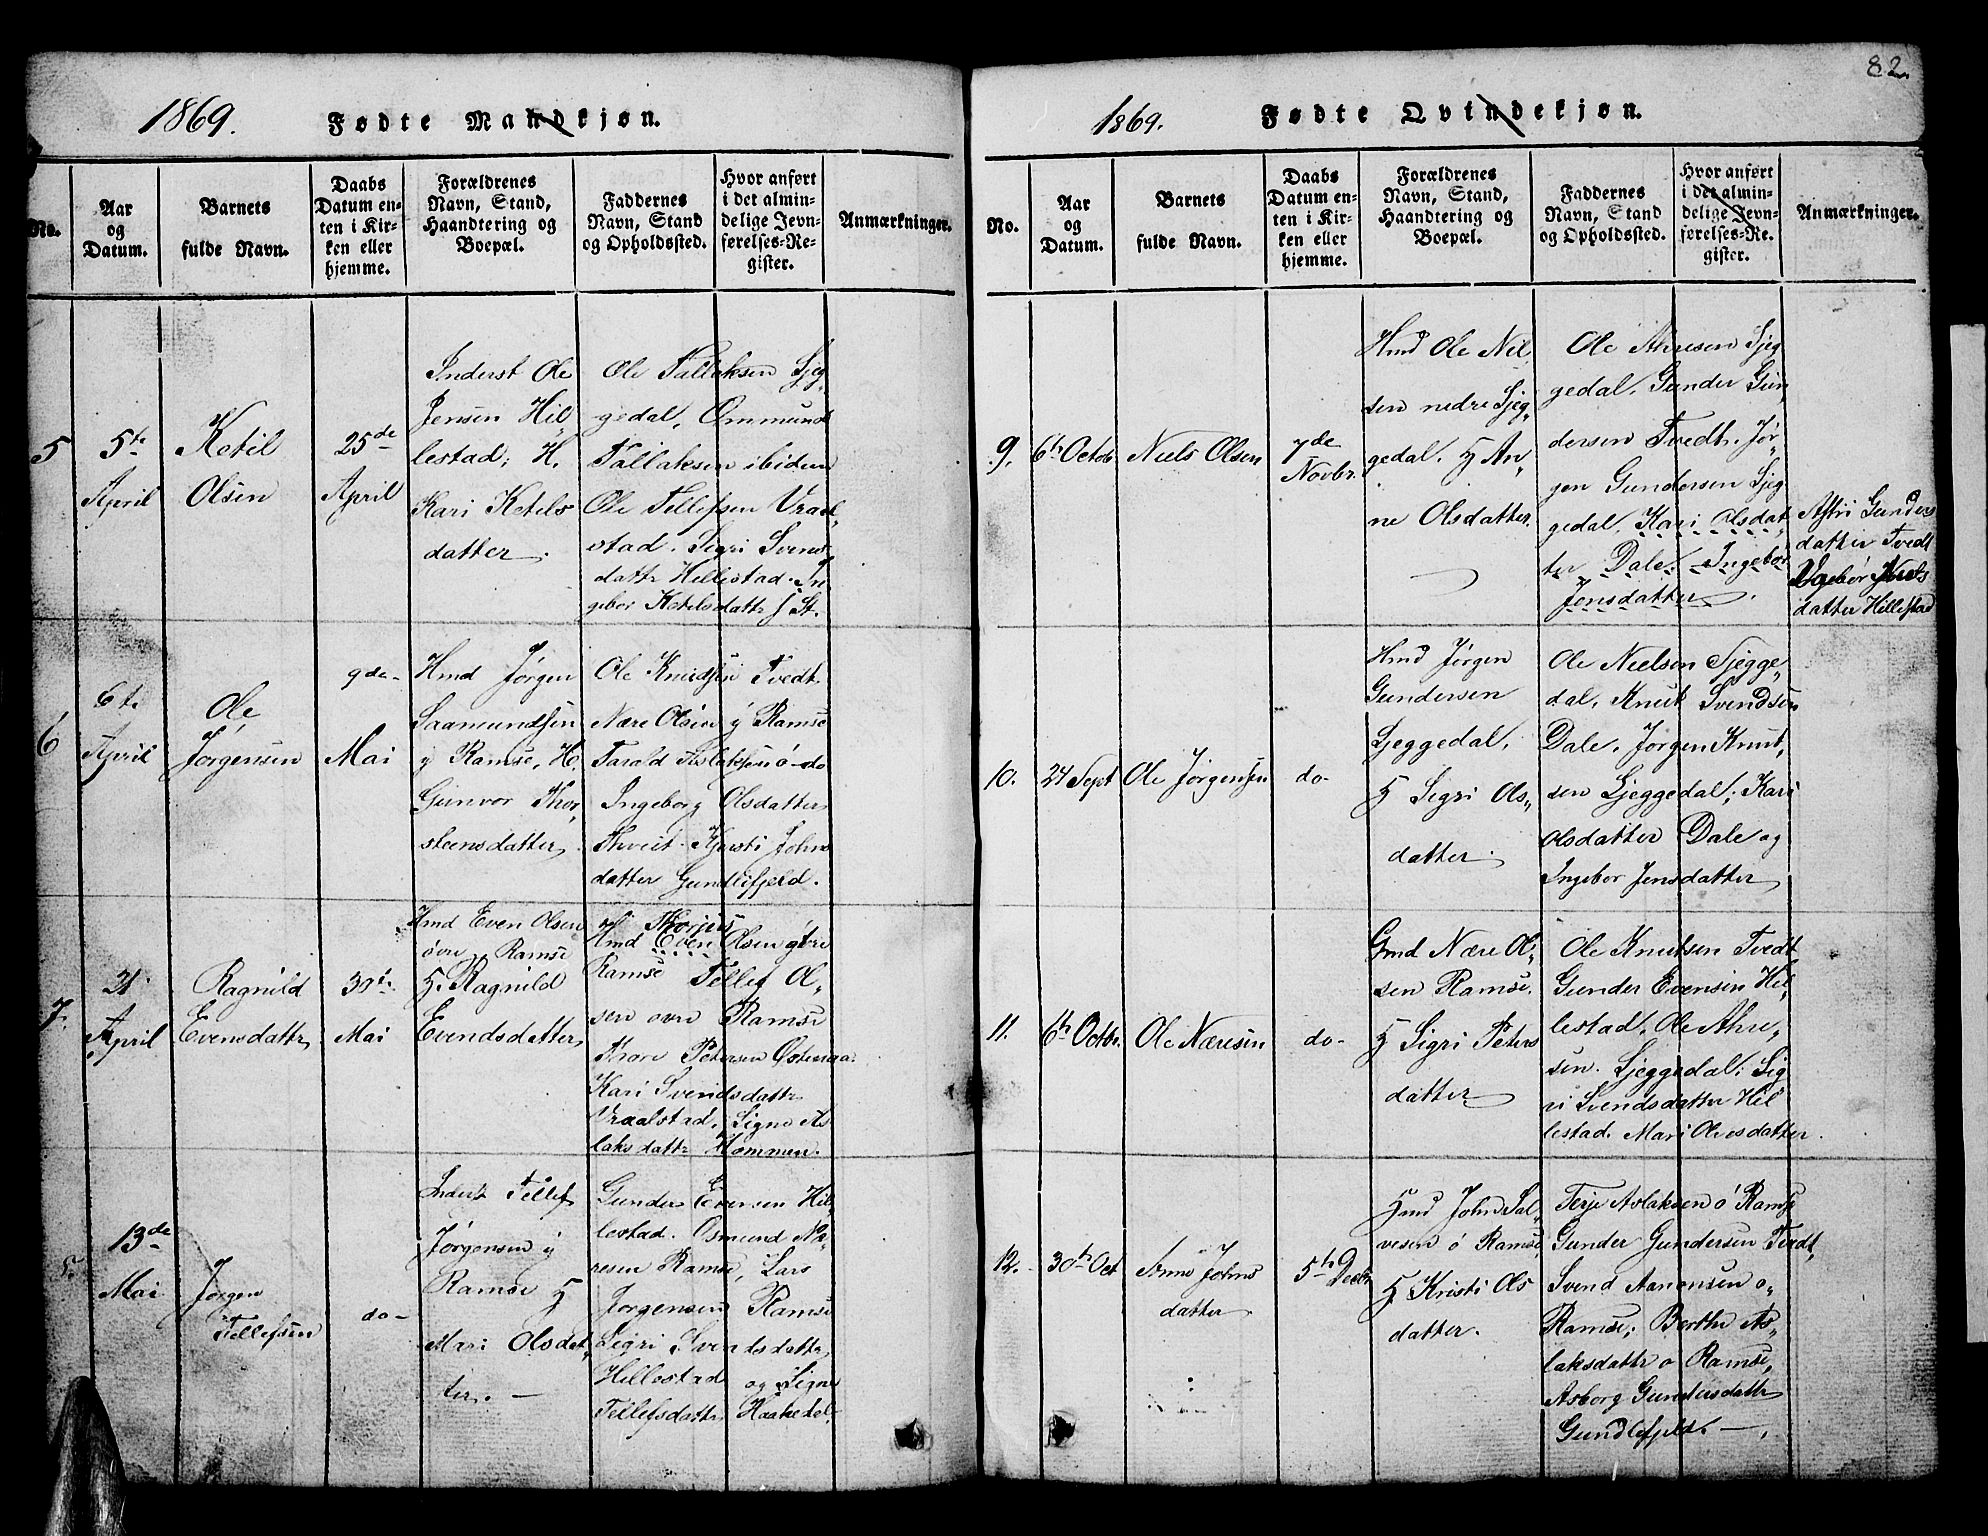 1869.
Fødte Mandkjøn.
No.
Aar
og
Datum.
Barnets
fulde Navn.
Daabs
Datum en-
ten i Kir-
ken eller
hjemme.
Forældrenes
Navn, Stand,
Haandtering og
Boepæl.
Faddernes
Navn, Stand
og Opholdssted.
Hvor anført
i det almin-
delige Jevn-
førelses-Re-
gister.
Anmærkninger.
5
5te
April
Ketil
Olsen
25de
April
Inderst Ole
Jensen Hil,
lestad; H.
Kari Ketels
datter.
Ole Tallaksen Ljeg
gedal, Ommund
Tallaksen ibidem
Ole Tellefsen Vraal,
stad. Sigri Svends
dattr Hillestad. In
gebor Ketelsdattr St.
6
6te
April
Ole
Jørgensen
9de
Mai
Hmd Jørgen
Saamundsen
y Ramse, H.
Gunvor Thor,
steensdatter.
Ole Knudsen Tvedt
Nære Olsen y Ramse
Tarald Aslaksen ø do
Ingeborg Olsdatter
Thveit. Kjersti Johns
datter Gundlifjeld.
7.
21
April
Ragnild
Evensdattr
30te
Mai
Hmd Even Olsen
øvre Ramse
H. Ragnild
Evendsdatter
Thorjus
Hmd Even Olsen øvre
Ramse Tellef Ol,
sen øvre Ramse
Thore Petersen
Kari Svendsdattr
Vraalstad, Signe As
laksdattr Hommen.
8.
13de
Mai
Jørgen
Tellefsen
do
Inderst Tellef
Jørgensen y
Ramse H
Mari Olsdat,
ter.
Gunder Evensen Hil,
lestad. Osmund Næ,
resen Ramse, Lars
Jørgensen Ramse
Sigri Svendsdattr
Hillestad og Signe
Tellefsdattr
82.
1869.
Fødte Qvindekjøn.
No.
Aar
og
Datum.
Barnets
fulde Navn.
Daabs
Datum en-
ten i Kir-
ken eller
hjemme.
Forældrenes
Navn, Stand,
Haandtering og
Boepæl.
Faddernes
Navn, Stand
og Opholdssted.
Hvor anført
i det almin-
delige Jevn-
førelses-Re-
gister.
Anmærkninger.
9.
6te Octob
Niels Olsen
7de
Novbr.
Hmd Ole Niel,
sen nedre Ljeg,
gedal. H An,
ne Olsdatter.
Ole Ahresen Ljeg
gedal. Gunder Gun,
dersen Tvedt. Jør,
gen Gundersen Ljeg
gedal. Kari Olsdat,
ter Dale. Ingebor
Jensdatter.
Astri Gunders
datter Tvedt
Ingebor Niels
datter Hillestad
10.
24 Sept
Ole Jørgensen
do
Hmd Jørgen
Gundersen
Ljeggedal.
H Sigri Ols,
datter.
Ole Nielsen Ljegge,
dal, Knut Svendsen
Dale. Jørgen Knut,
sen Ljeggedal; Kari
Olsdatter Dale og
Ingebor Jensdatter
11.
6te Octbr.
Ole Næresen
do
Gmd Nære Ol,
sen Ramse.
H Sigri Peters
datter
Ole Knutsen Tvedt
Gunder Evensen Hil,
lestad. Ole Ahre,
sen. Ljeggedal; Sig
ri Svendsdatter Hil
lestad. Mari Olvesdatter.
12.
30te Oct
Anne Johns
datter
5te Decbr
Hmd John Sal,
vesen ø Ramse
H Kristi Ols
datter.
Terje Aslaksen ø Ramse
Gunder Gundersen Tvedt,
Svend Aanensen ø,
Ramse; Berthe As,
laksdattr ø Ramse,
Asborg Gundersdattr
Gundlefjeld.